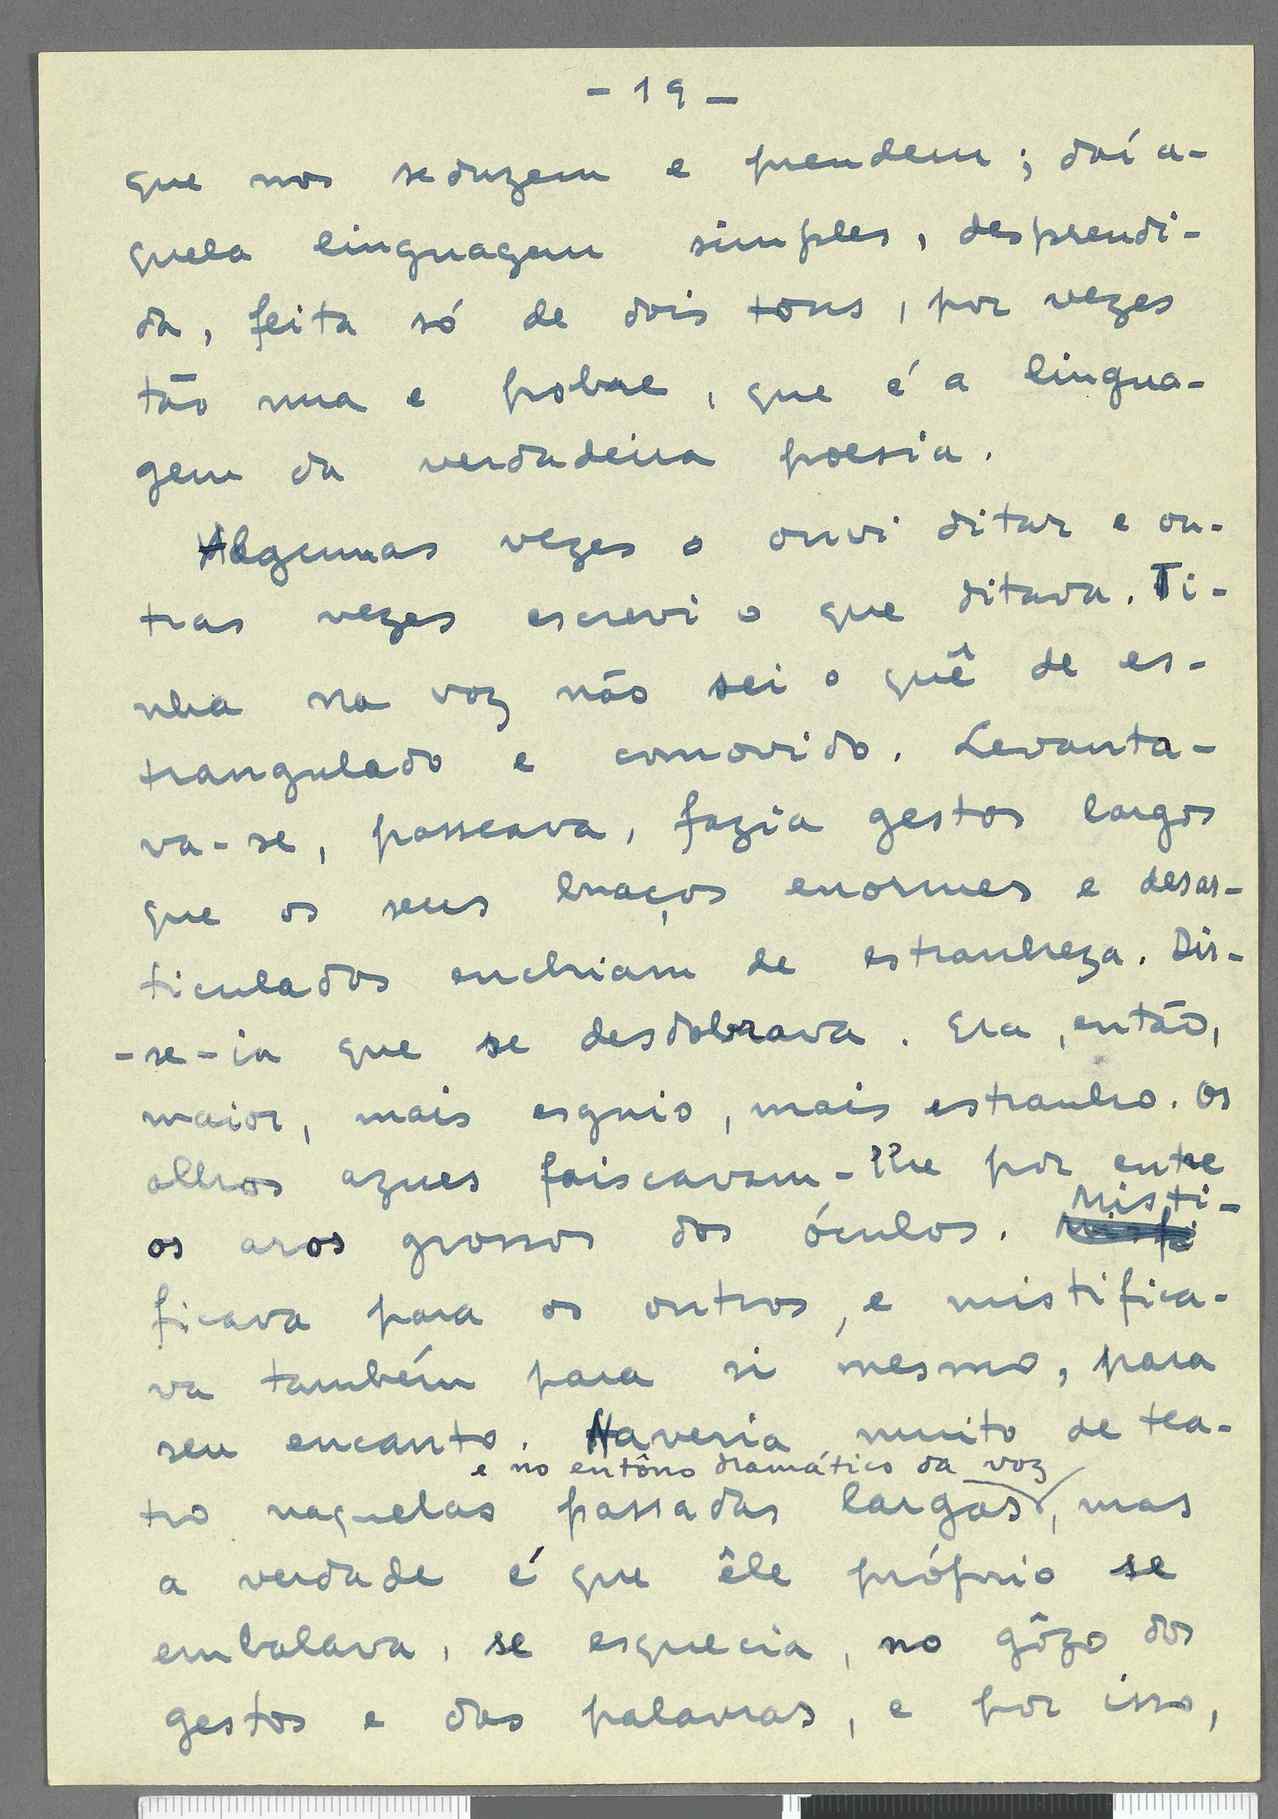 - 19 -
que nos seduzem e prendem; daí a-
quela linguagem simples, desprendi-
da, feita só de dois tons, por vezes
tão nua e pobre, que é a lingua-
gem da verdadeira poesia.
Algumas vezes o ouvi ditar e ou-
tras vezes escrevi o que ditava. Ti-
nha na voz não sei o quê de es-
trangulado e comovido. Levanta-
va-se, passeava, fazia gestos largos
que os seus braços enormes e desar-
ticulados enchiam de estranheza. Dir-
-se-ia que se desdobrava. Era, então,
maior, mais esguio, mais estranho. Os
olhos azues faiscavam-lhe por entre
os aros grossos dos óculos. Misti-
ficava para os outros, e mistifica-
va também para si mesmo, para
seu encanto. Haveria muito de tea-
e no entôno dramático da voz
tro naquelas passadas largas, mas
a verdade é que êle próprio se
embalava, se esquecia, no gôzo dos
gestos e das palavras, e por isso,